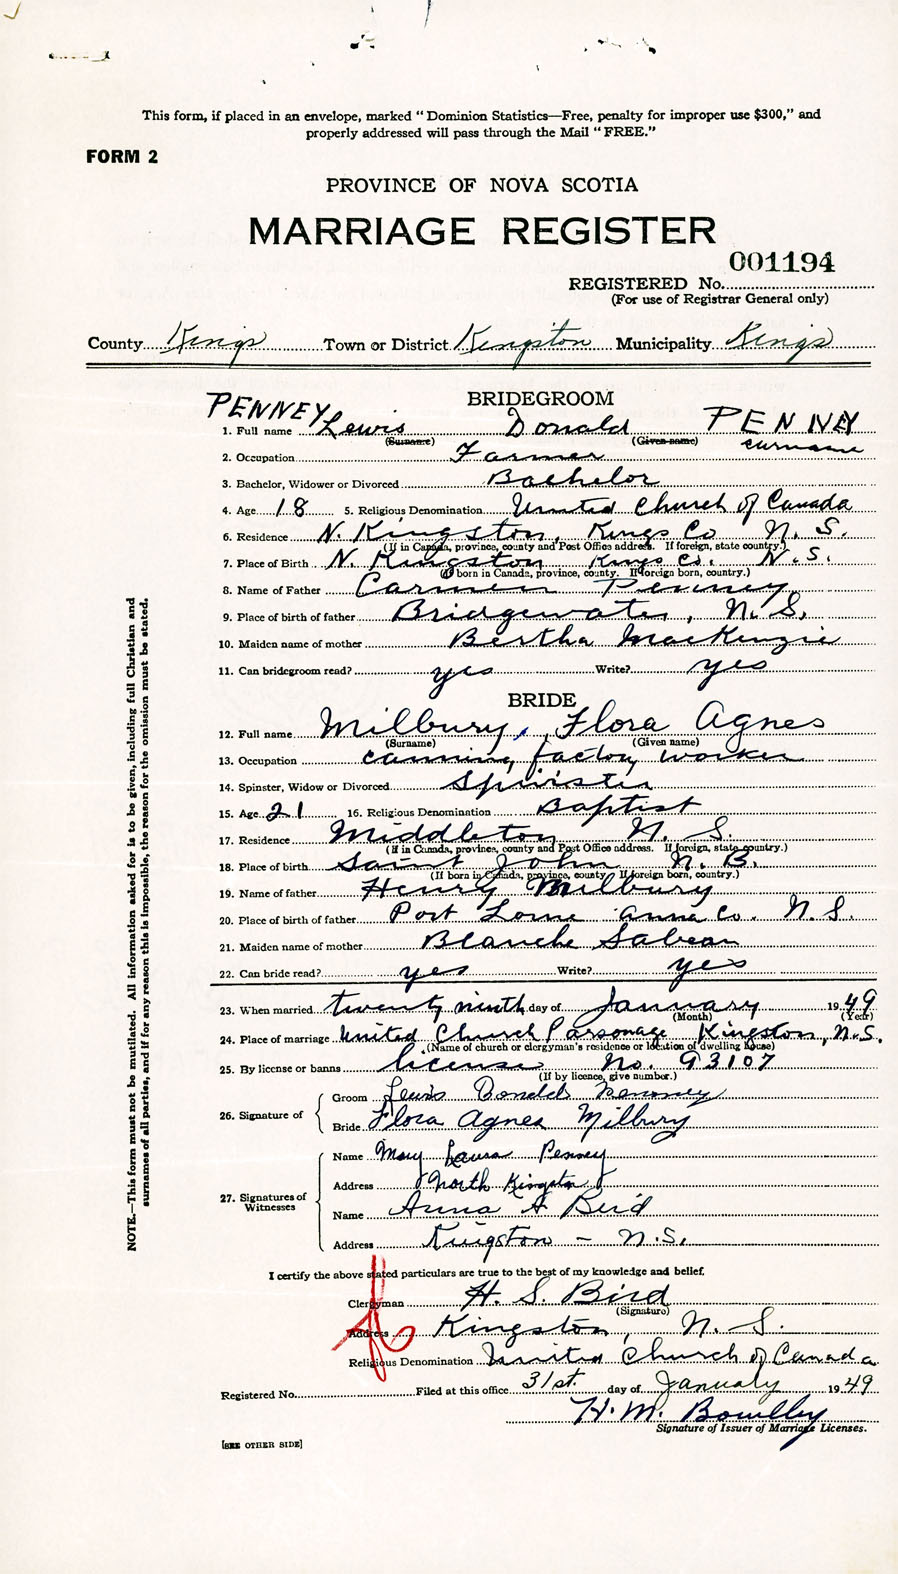 This form, if placed in an envelope, marked "Dominion Statistics—Free, penalty for improper use $300," and
properly addressed will pass through the Mail "FREE."
FORM 2
PROVINCE OF NOVA SCOTIA
MARRIAGE REGISTER
001194
REGISTERED No.
(For use of Registrar General only)
County Kings Town or District Kingston Municipality Kings
BRIDEGROOM
PENNEY
1. Full name Lewis Donald PENNEY
(Surname) (Given name) surname
2. Occupation Farmer
3. Bachelor, Widower or Divorced Bachelor
4. Age 18 5. Religious Denomination United Church of Canada
6. Residence N. Kingston, Kings Co N. S.
(If in Canada, province, county and Post Office address. If foreign, state country.)
7. Place of Birth N. Kingston Kings Co. N.S.
(If born in Canada, province, county. If foreign born, country.)
8. Name of Father Carmen Penney
9. Place of birth of father Bridgewater, N. S.
10. Maiden name of mother Bertha MacKenzie
11. Can bridegroom read? yes Write? yes
BRIDE
12. Full name Milbury, Flora Agnes
(Surname) (Given name)
13. Occupation canning factory worker
14. Spinster, Widow or Divorced Spinster
15. Age 21 16. Religious Denomination Baptist
17. Residence Middleton N. S.
(If in Canada, province, county and Post Office address. If foreign, state country.)
18. Place of birth Saint John N. B.
(If born in Canada, province, county. If foreign born, country.)
19. Name of father Henry Milbury
20. Place of birth of father Port Lorne Anna Co. N. S.
21. Maiden name of mother Blanche Sabean
22. Can bride read? yes Write? yes
23. When married twenty ninth day of January 1949
(Month) (Year)
24. Place of marriage United Church Parsonage Kingston, N.S.
(Name of church or clergyman's residence or location of dwelling house)
25. By license or banns license No. 93107
(If by licence, give number.)
26. Signature of
Groom Lewis Donald Penney
Bride Flora Agnes Milbury
27. Signatures of Witnesses
Name Mary Laura Penney
Address North Kingston
Name Anna A Bird
Address Kingston - N.S.
I certify the above stated particulars are true to the best of my knowledge and belief.
Clergyman H. S. Bird
(Signature)
Address Kingston, N. S.
Religious Denomination United Church of Canada
Registered No. Filed at this office 31st. day of January 1949
H. M. Bowlby
Signature of Issuer of Marriage Licenses.
[SEE OTHER SIDE]
NOTE.—This form must not be mutilated. All information asked for is to be given, including full Christian and
surnames of all parties, and if for any reason this is impossible, the reason for the omission must be stated.